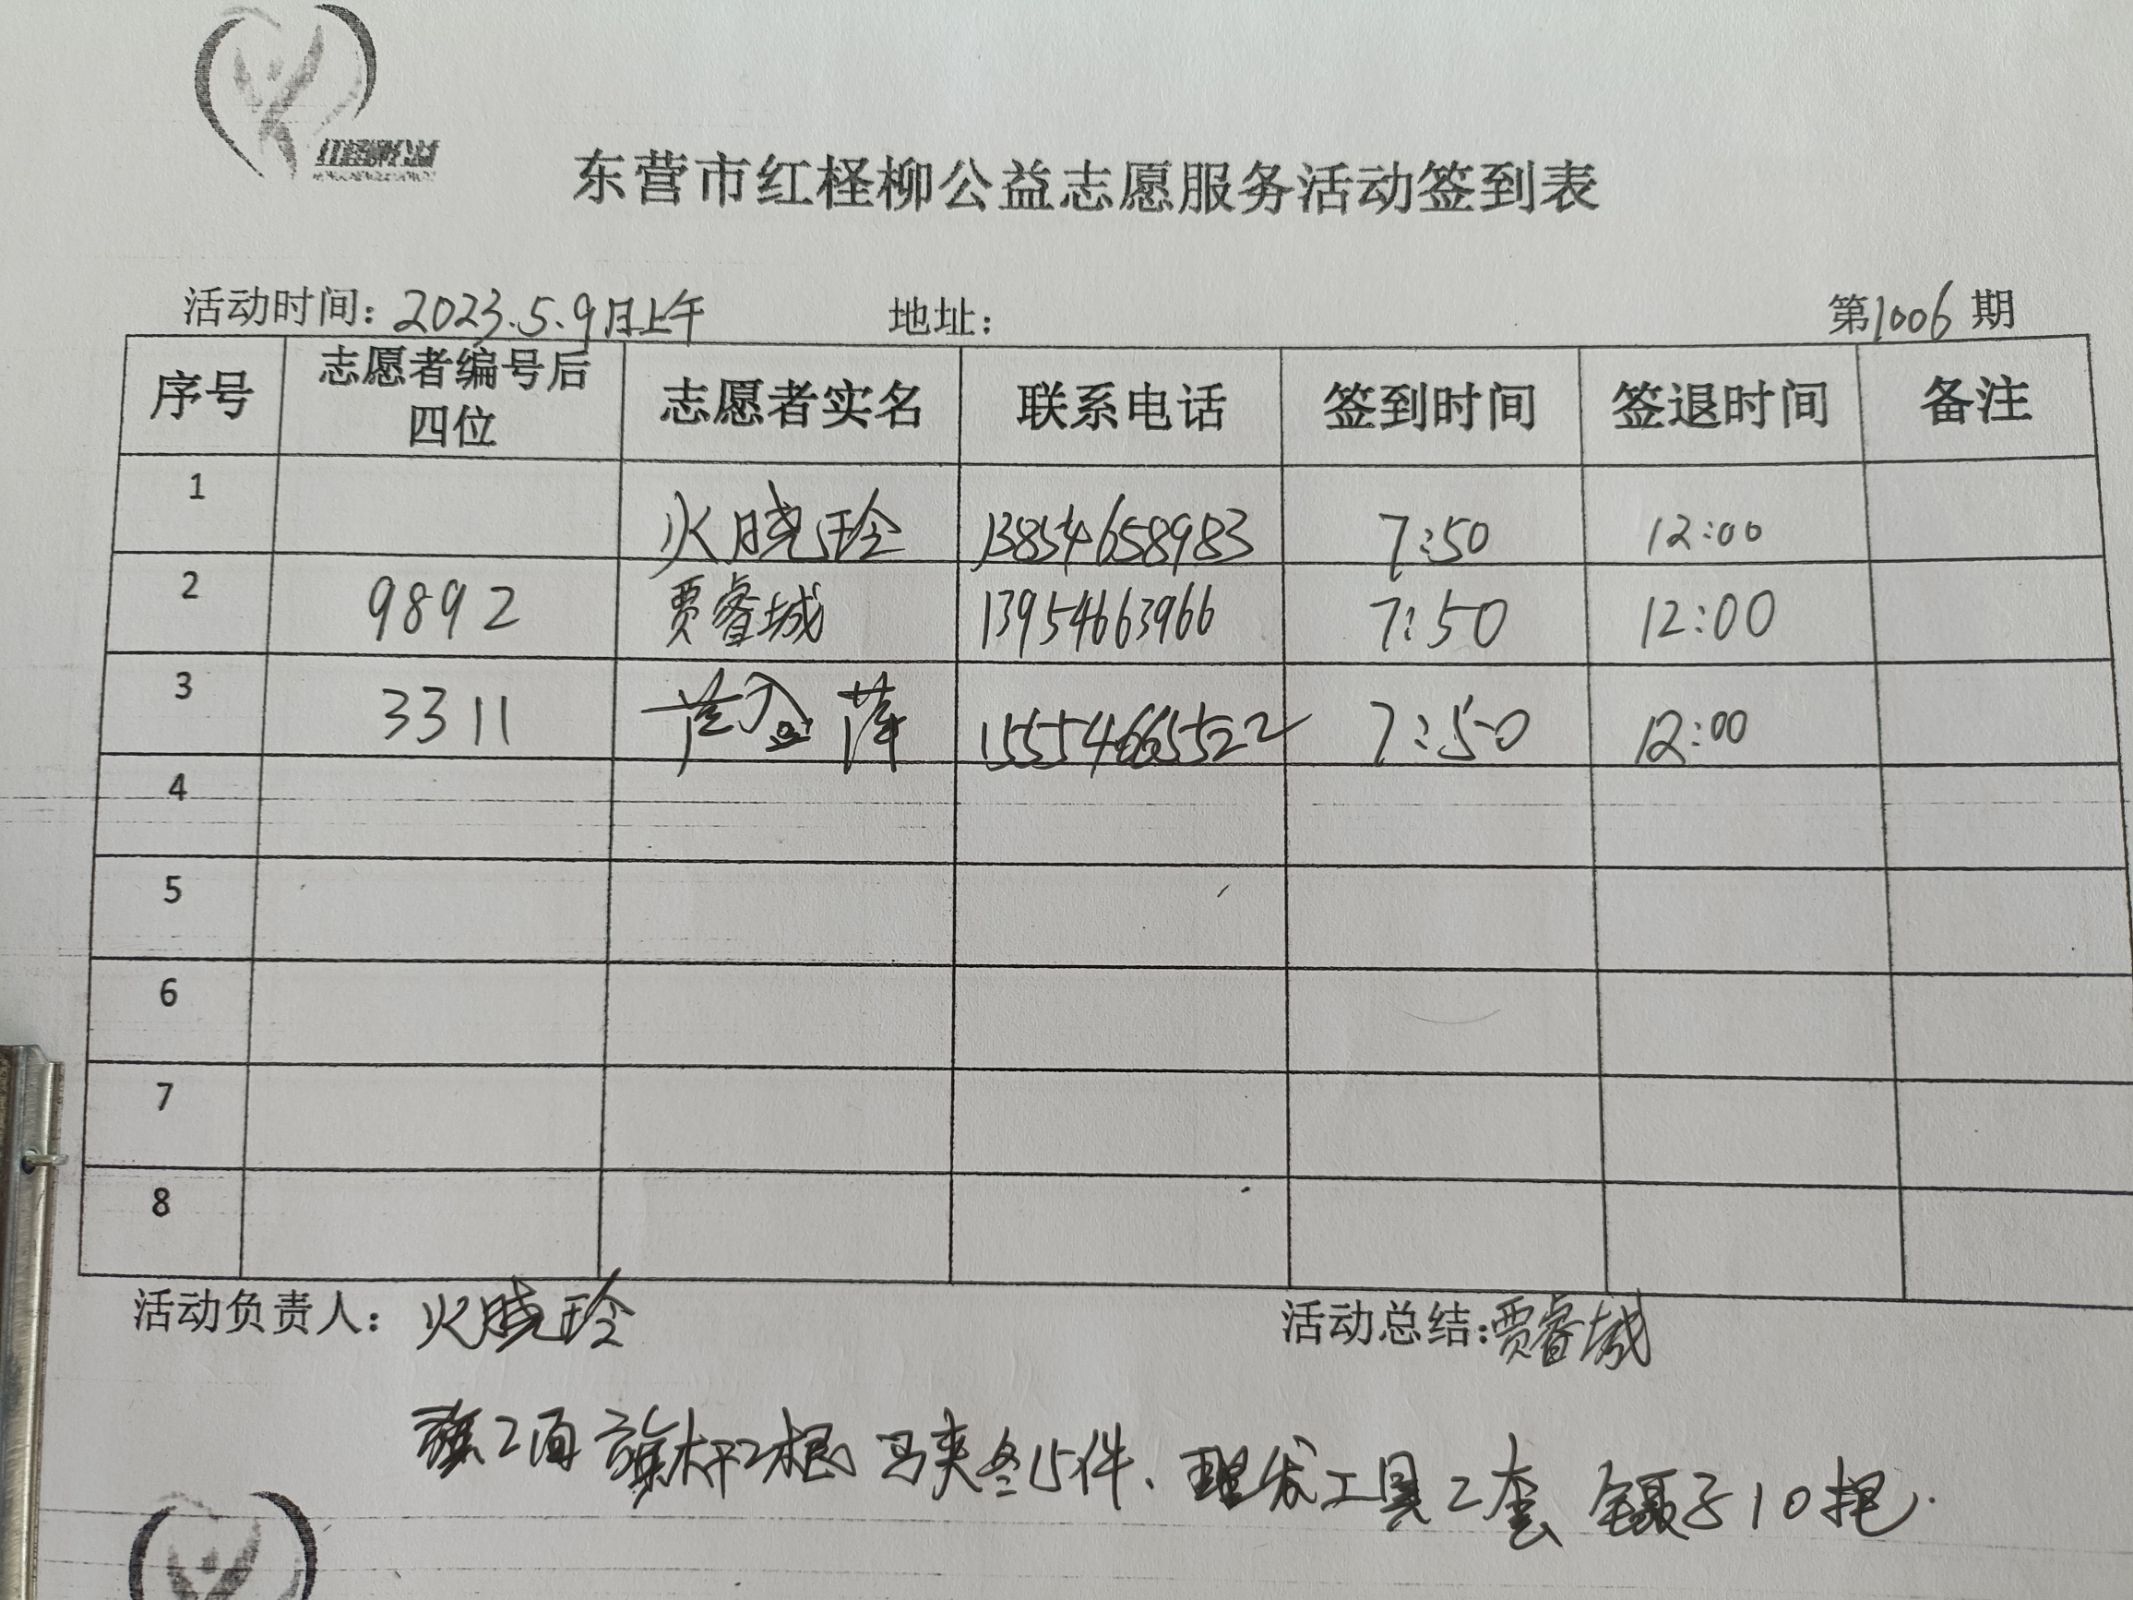 红柽柳公益
东营市红柽柳公益志愿服务活动签到表
活动时间：2023.5.9日上午 地址： 第1006期
序号 志愿者编号后四位 志愿者实名 联系电话 签到时间 签退时间 备注
1 火晓玲 13854658983 7:50 12:00
2 9892 贾睿城 13954663966 7:50 12:00
3 3311 萍 15554665522 7:50 12:00
4
5
6
7
8
活动负责人：火晓玲 活动总结：贾睿城
旗2面 旗杆2根 马夹冬15件、理发工具2套 镊子10把.